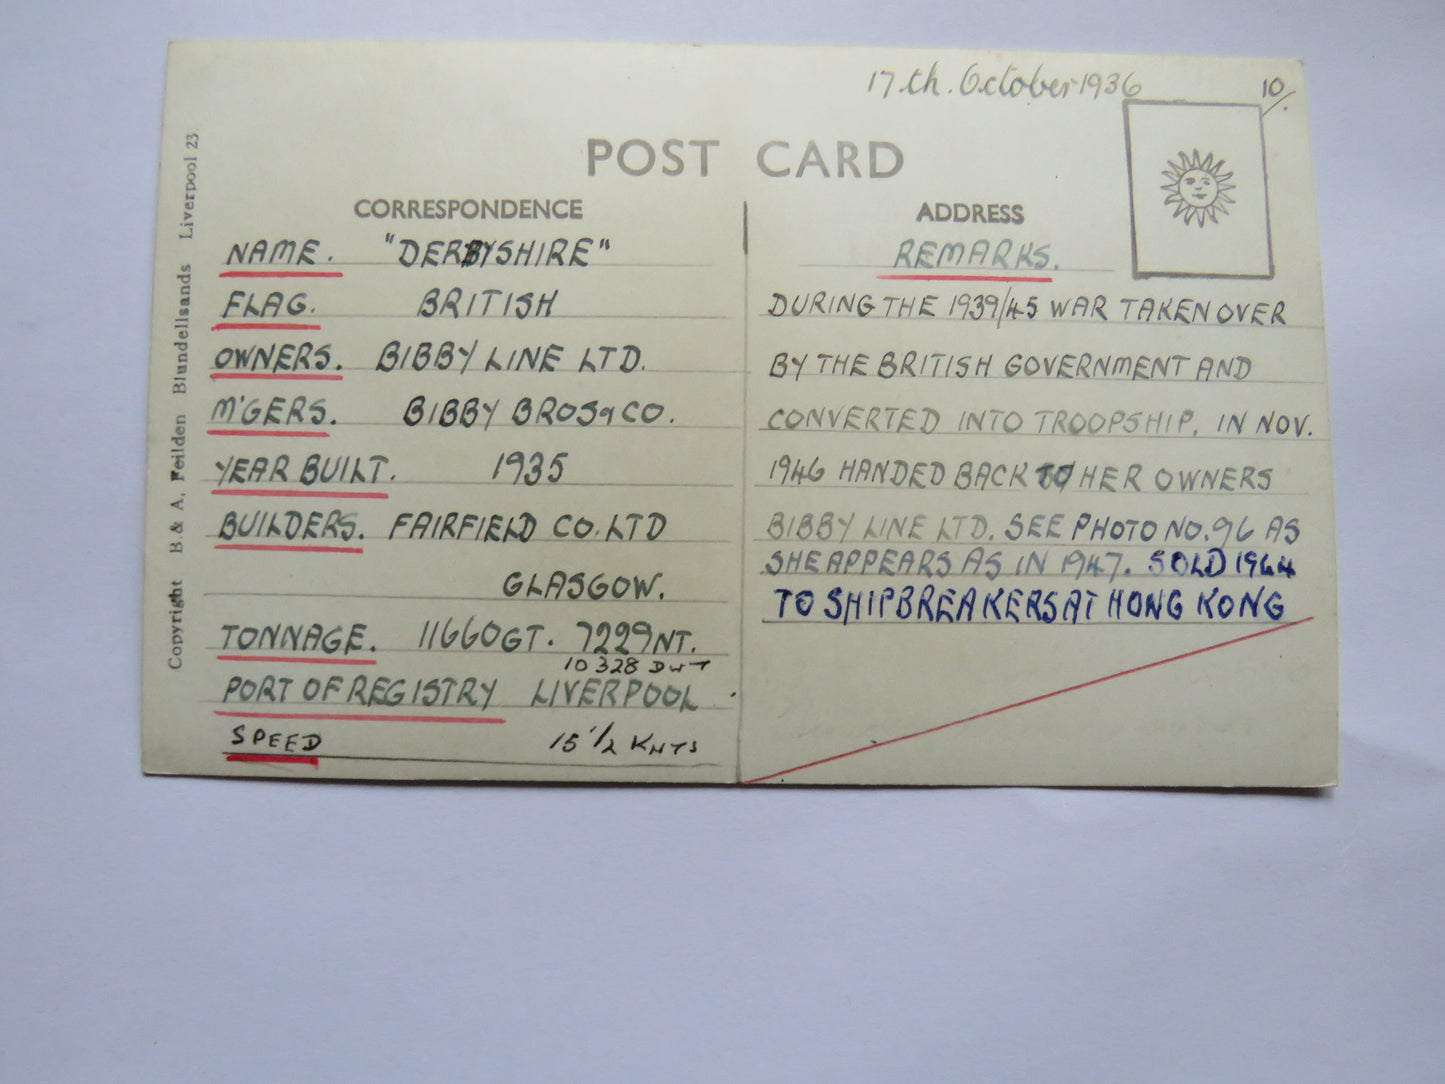 17th. October 1936
10/.
POST CARD
CORRESPONDENCE
NAME. "DERBYSHIRE"
FLAG. BRITISH
OWNERS. BIBBY LINE LTD.
M'GERS. BIBBY BROS & CO.
YEAR BUILT. 1935
BUILDERS. FAIRFIELD CO. LTD
GLASGOW.
TONNAGE. 11660GT. 7229NT.
10328 DWT
PORT OF REGISTRY LIVERPOOL
SPEED 15 1/2 KNTS
ADDRESS
REMARKS.
DURING THE 1939/45 WAR TAKEN OVER
BY THE BRITISH GOVERNMENT AND
CONVERTED INTO TROOPSHIP. IN NOV.
1946 HANDED BACK TO HER OWNERS
BIBBY LINE LTD. SEE PHOTO NO. 96 AS
SHE APPEARS AS IN 1947. SOLD 1964
TO SHIPBREAKERS AT HONG KONG
Copyright B. & A. Feilden Blundellsands Liverpool 23.